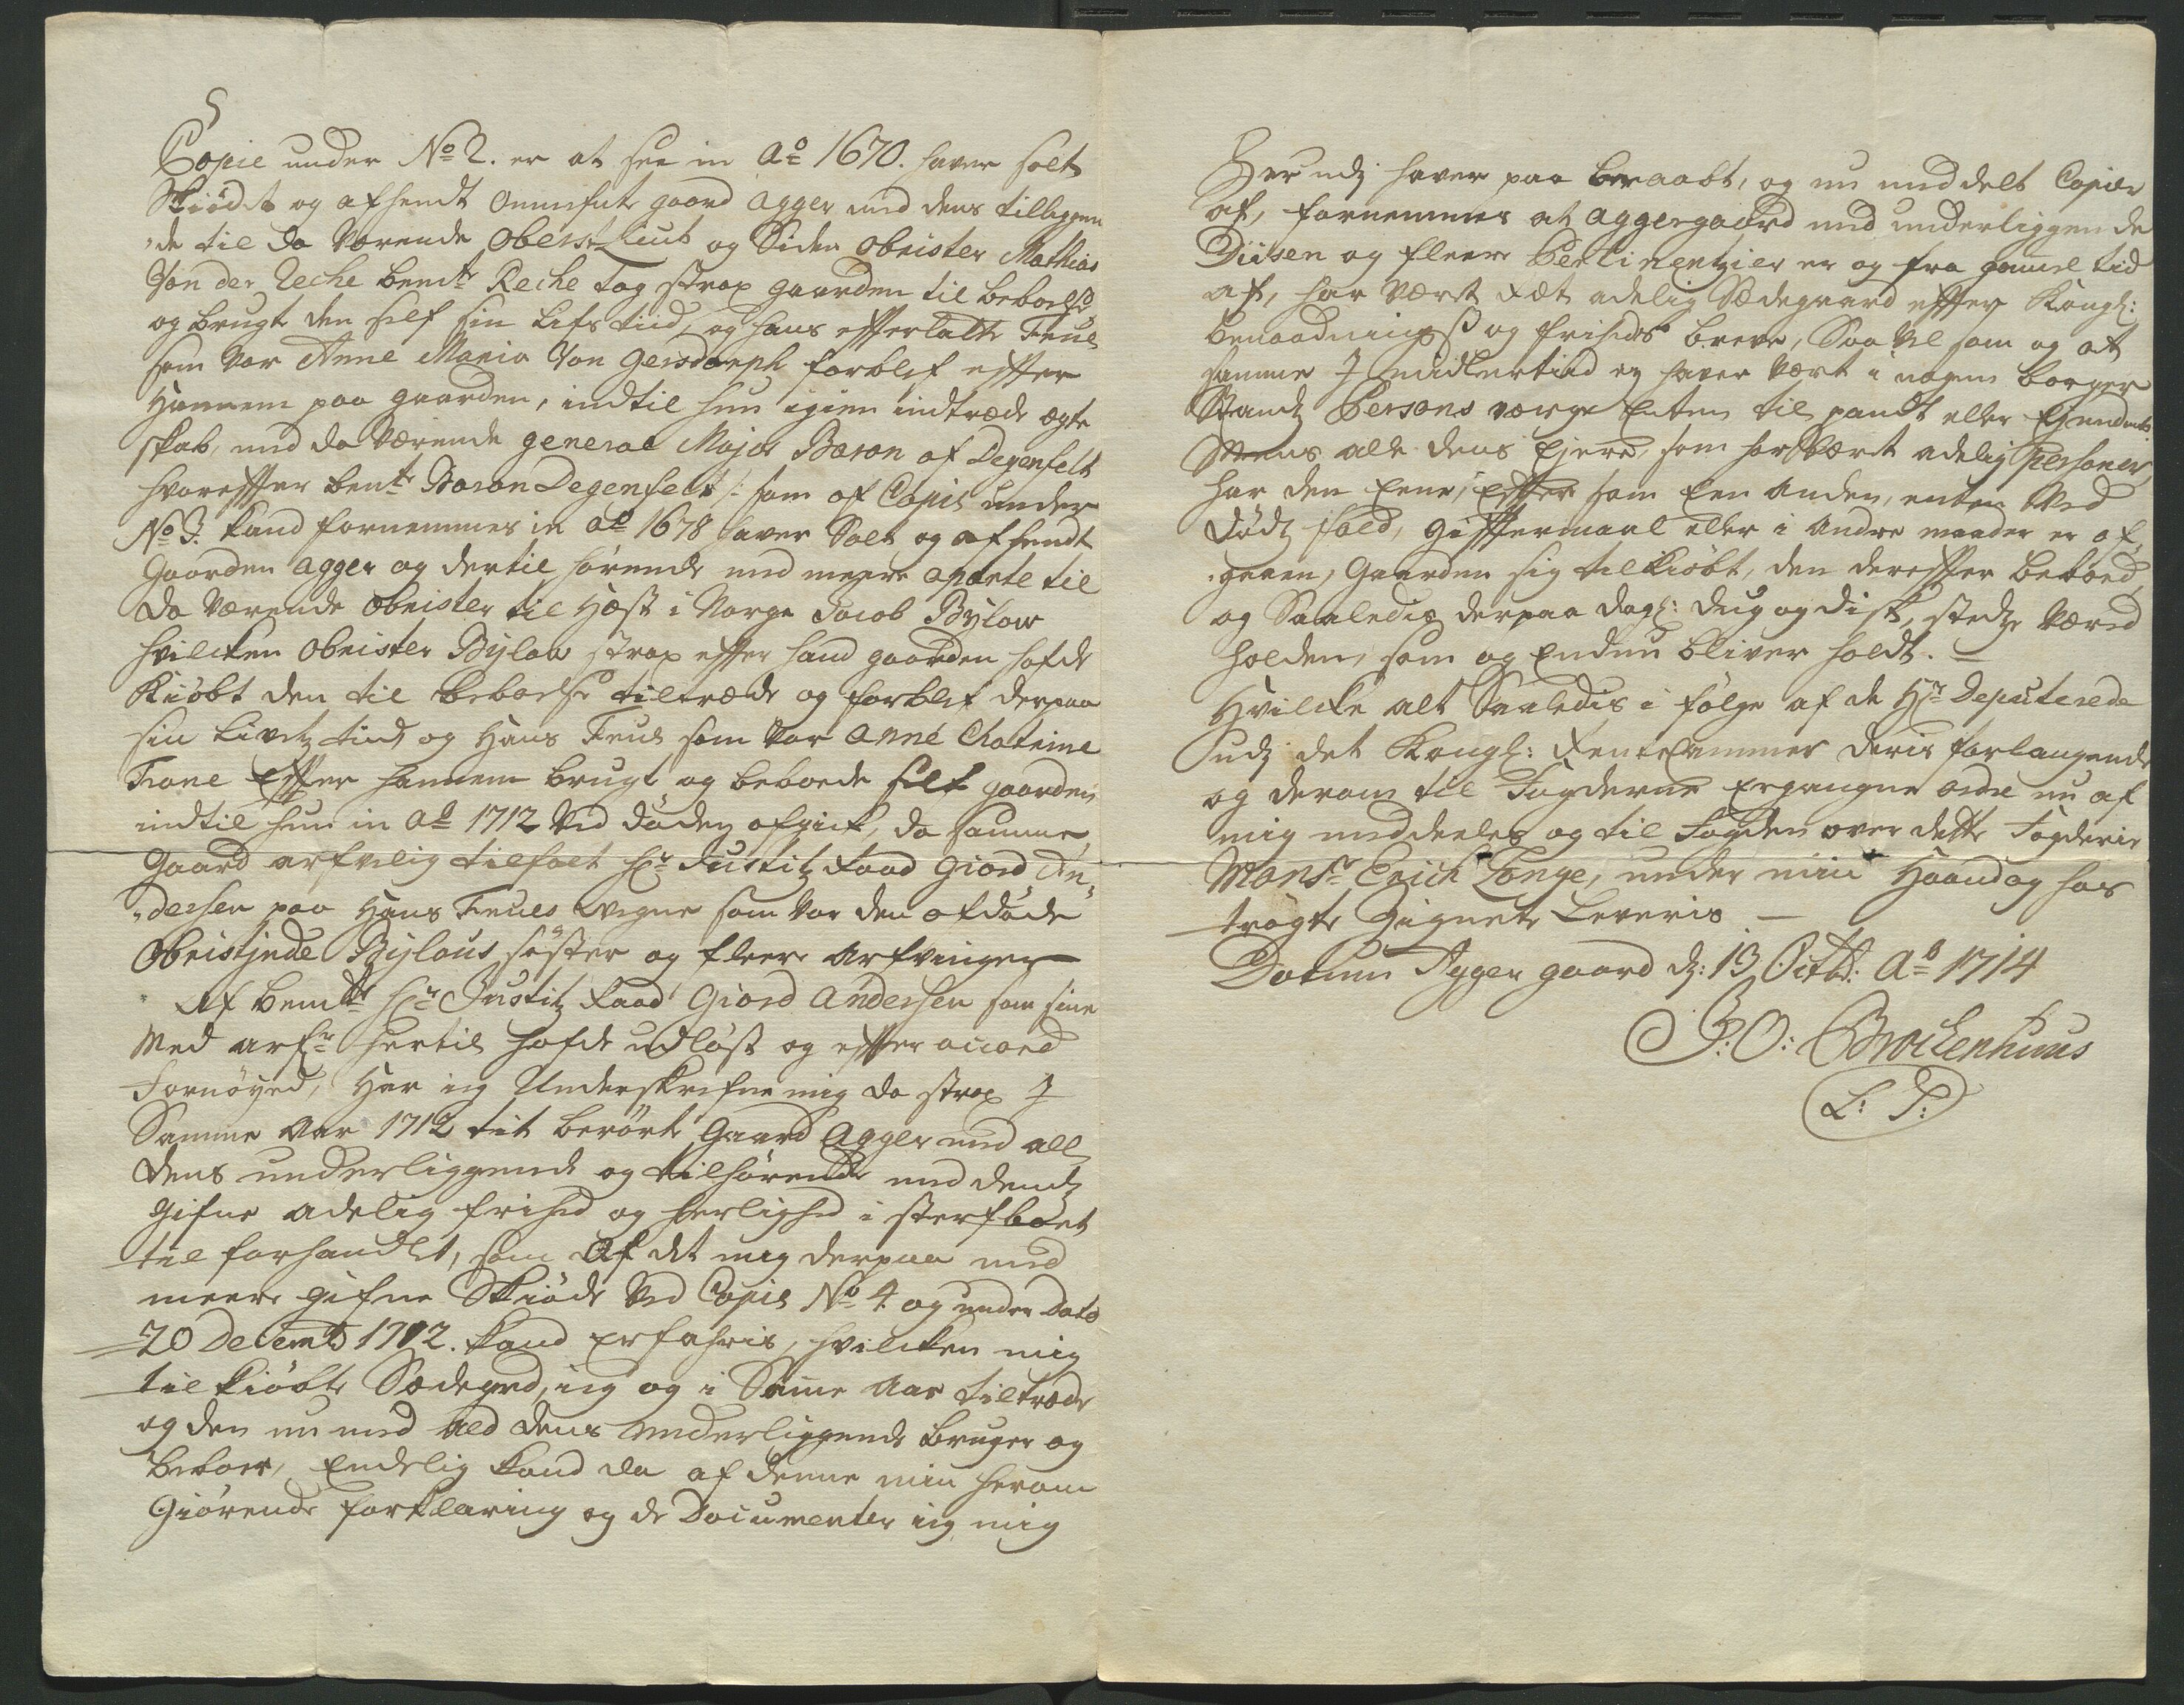 Copie under No 2. er at see in Ao 1670. haver solt
Skiødt og afhendt ommelte gaard Agger med dens tilliggen
"de til da Værende Oberst Leut og Siden Obrister Mathias
Von der Reche bemte Reche tog strax gaarden til beboelse
og brugt den self sin Lifs tiid, og hans efterlatte Frue
som var Anne Maria Von Gersdorph forblef efter
Hannem paa gaarden, indtil hun igien indtræde ægte
skab, med da værende general Major Baron af Degenfelt
hvorefter bemte Baron Degenfelt /: som af Copie under
No 3. kand fornemmes in ao 1678 haver Solt og afhendt
Gaarden Agger og dertil hørende med meere aparte til
da Værende Obrister til Hæst i Norge Jacob Bylow
hvilcken Obrister Bylow strax efter hand gaarden hafde
Kiøbt den til beboelse tiltræde og forblef derpaa
sin Livetz tiid, og Hans Frue som var Anne Chatrine
Trane Efter hannem brugt og beboede self gaarden
indtil hun in Ao 1712 Ved døden afgick, da samme
Gaard arfvelig tilfalt Hr Justitz Raad Giord An"
"dersen paa Hans Frues Vegne som var den afdøde
Obristjnde Bylous søster og fleere Arfvinger
Af bemte Hr Justitz Raad Giord Andersen som sine
Med arfr hertil hafde udløst og efter accord
Fornøyed, Har ieg Underskrefne mig da strax J
Samme Aar 1712 tit berørte Gaard Agger med all
dens underliggende og tilhørende med dends
Gifne adelig frihed og herlighed i sterfboet
til forhandlet, som af det mig derpaa med
meere gifne Skiøde Ved Copie No 4. og under Dato
20 Decemb 1712. kand erfahris, hvilcken mig
til kiøbte Sædegrd, ieg og i Samme Aar tiltræde
og den nu med ald dens underliggende bruger og
beboer, Endelig kand da af denne min herom
Giørende forklaring og de Documenter ieg mig
Her udj haver paa beraabt, og nu meddelt Copier
af, fornemmes at Aggergaard med underliggende
Diisen og fleere Pertinentzier er og fra gammel tid
af, har Værit Ræt adelig Sædegaard efter Kongl:
benaadnings og friheds breve, Saa vel som og at
samme J midlertiid ey haver vært i nogen borger
Standtz Persons værge Enten til pandt eller Ejendomb
Mens alle dens Ejere, som har Værit adelig Personer,
har den Eene, Efter som Een Anden, enten Ved
dødz fald, gifftermaal eller i Andre maader er af,
"gaaen, Gaarden sig tilkiøbt, den derefter beboed,
og Saaledis derpaa dagl: dug og disk, stedtze Været
holden, som og Endnu bliver holdt. —
Hvilcke alt Saaledis i følge af de Hr Deputerede
udj det Kongl: RenteCammer deris forlangende
og derom til Fogderne Ergangne ordre nu af
mig meddeeles og til Fogden over dette Fogderie
Monsr Erich Longe, under min Haand og hos
trøgte Zignete Leveris —
Datum Agger gaard d: 13 Octbr: Ao 1714
J: O: Brockenhuus
L: S: